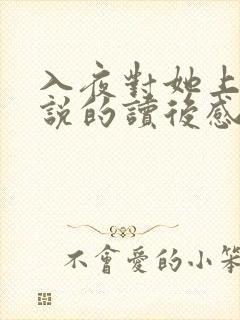 入夜對她上
說的讀後感
不會愛的小笨